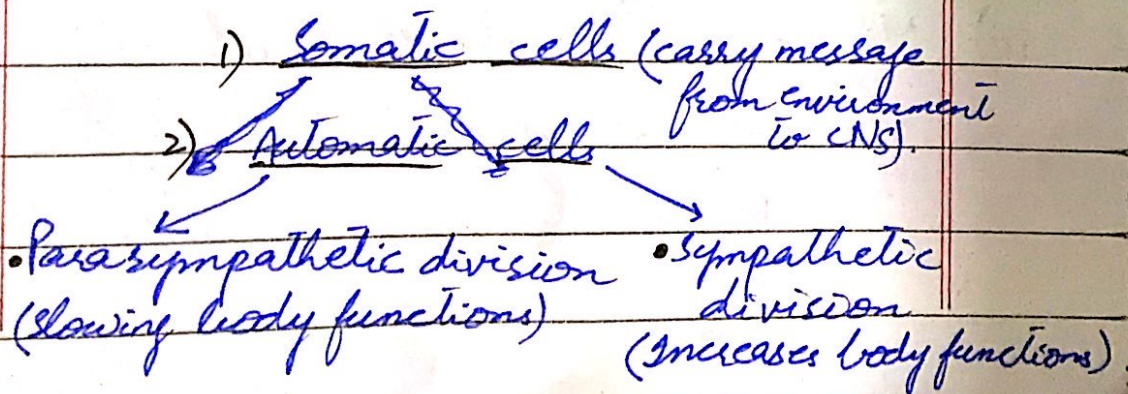 1) Somatic cells (carry message
from environment
to CNS).
2) Automatic cells
• Parasympathetic division
(slowing body functions)
• Sympathetic
division
(Increases body functions).